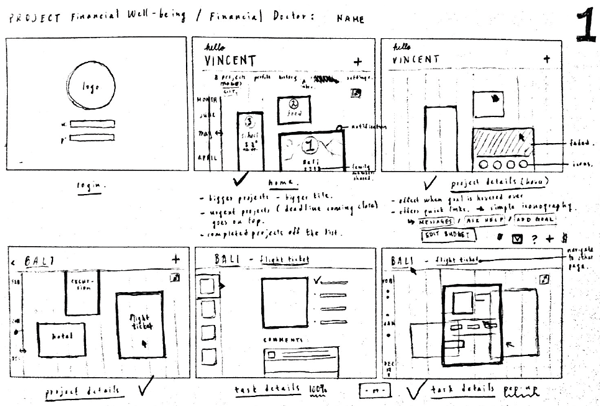 PROJECT Financial Well-being / Financial Doctor: NAME
1
logo
login.
hello
VINCENT +
projects profile history settings
MONTH
JUNE
MAY
APRIL
2
food
3
School
1
Bali
notification
family member shared.
home.
- bigger projects - bigger tile.
- urgent projects (deadline coming close)
goes on top.
- completed projects off the list.
hello
VINCENT +
faded.
icons.
project details (hover)
- effect when goal is hovered over
- offers quick links. → simple iconography.
↳ MESSAGES / ASK HELP / ADD GOAL
EDIT BUDGET
? +
< BALI +
excursion
hotel
flight ticket
project details
BALI - flight ticket
COMMENTS
task details 100%
BALI - flight ticket
navigate to other page.
JAN
DEC
task details pop-up